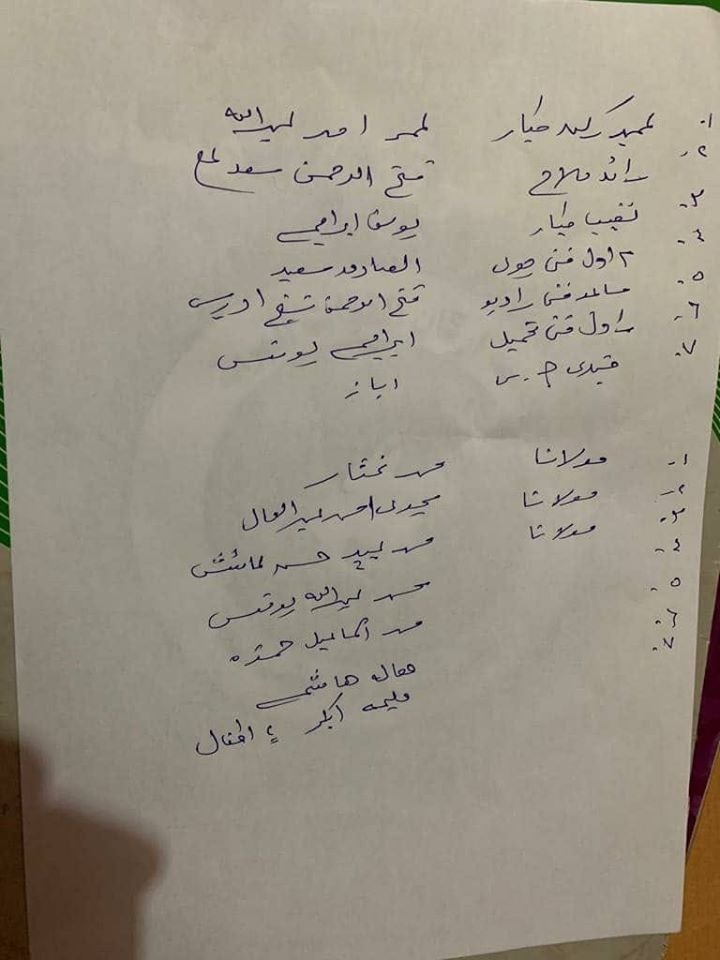 ١. عميد ركن طيار عمر احمد عبدالله
٢. رائد ملاح فتح الرحمن سعد
٣. نقيب طيار يوسف ابراهيم
٤. م اول فني جوي الصادق سعيد
٥. مساعد فني راديو فتح الرحمن شيخ ادريس
٦. م اول فني تحميل ابراهيم يونس
٧. جندي ح. س اباذر
١. مولانا محمد مختار
٢. مولانا احمد عبدالعال
٣. مولانا محمد عبيد حسن
٤. محمد عبدالله يونس
٥. محمد اسماعيل حمزه
٦. هاشم
٧. حليمه ابكر ٤ اطفال